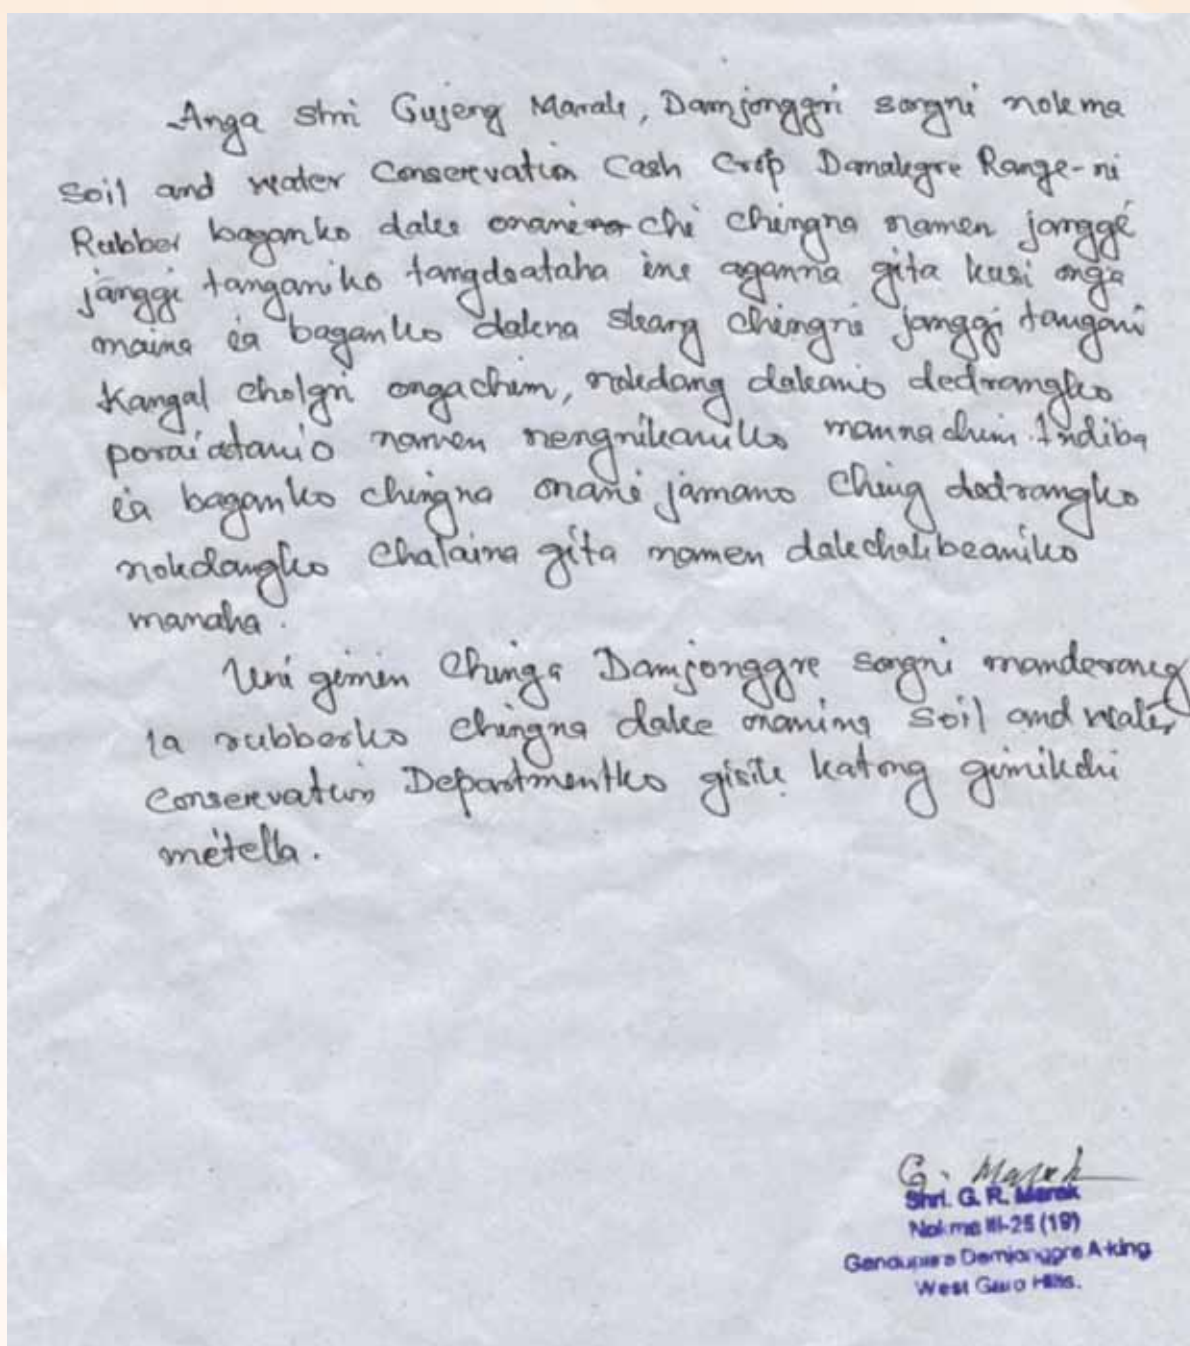 Anga shri Gujeng Marak, Damjonggri songni nokma
Soil and water Conservation Cash Crop Damalgre Range-ni
Rubber baganko dake onani chi chingna namen janggi
janggi tanganiko tangdoataha ine aganna gita kusi onga
maina ia baganko dakna skang chingni janggi tangani
Kangal cholgri ongachim, nokdang dakanio dedrangko
poraiatanio namen nengnikaniko mannachim. Indiba
ia baganko chingna onani jamano ching dedrangko
nokdangko Chalaina gita namen dakchakbeaniko
manaha.
Uni gimin Chinga Damjonggre songni manderang
ia rubberko chingna dake onanina Soil and water
Conservation Departmentko gisik katong gimikchi
mitella.
G. Marak
Shri. G. R. Marak
Nokma III-25 (19)
Gandupara Damjonggre A·king
West Garo Hills.